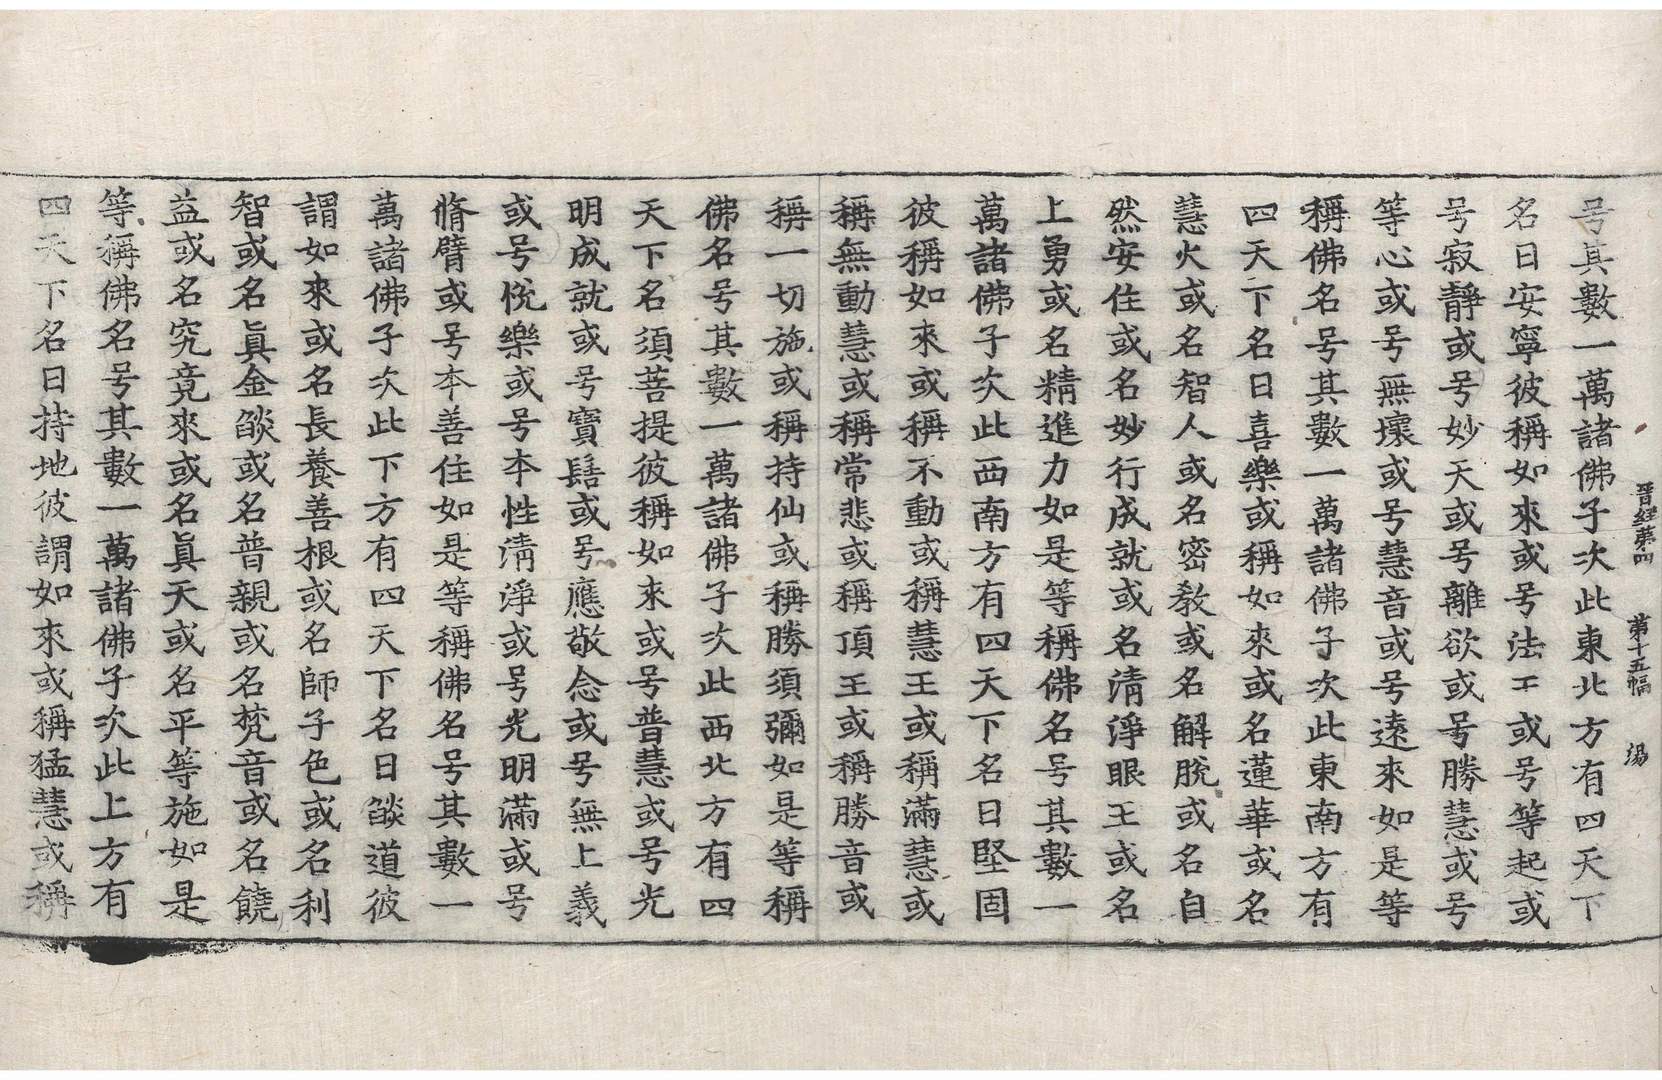 晋經第四 第十五幅 湯
号其數一萬諸佛子次此東北方有四天下
名曰安寧彼稱如來或号法工或号等起或
号寂靜或号妙天或号離欲或号勝慧或号
等心或号無壞或号慧音或号遠來如是等
稱佛名号其數一萬諸佛子次此東南方有
四天下名曰喜樂或稱如來或名蓮華或名
慧火或名智人或名密教或名解脫或名自
然安住或名妙行成就或名清淨眼王或名
上勇或名精進力如是等稱佛名号其數一
萬諸佛子次此西南方有四天下名曰堅固
彼稱如來或稱不動或稱慧王或稱滿慧或
稱無動慧或稱常悲或稱頂王或稱勝音或
稱一切施或稱持仙或稱勝須彌如是等稱
佛名号其數一萬諸佛子次此西北方有四
天下名須菩提彼稱如來或号普慧或号光
明成就或号寶髻或号應敬念或号無上義
或号悅樂或号本性清淨或号光明滿或号
脩臂或号本善住如是等稱佛名号其數一
萬諸佛子次此下方有四天下名曰燄道彼
謂如來或名長養善根或名師子色或名利
智或名眞金燄或名普親或名梵音或名饒
益或名究竟來或名眞天或名平等施如是
等稱佛名号其數一萬諸佛子次此上方有
四天下名曰持地彼謂如來或稱猛慧或稱